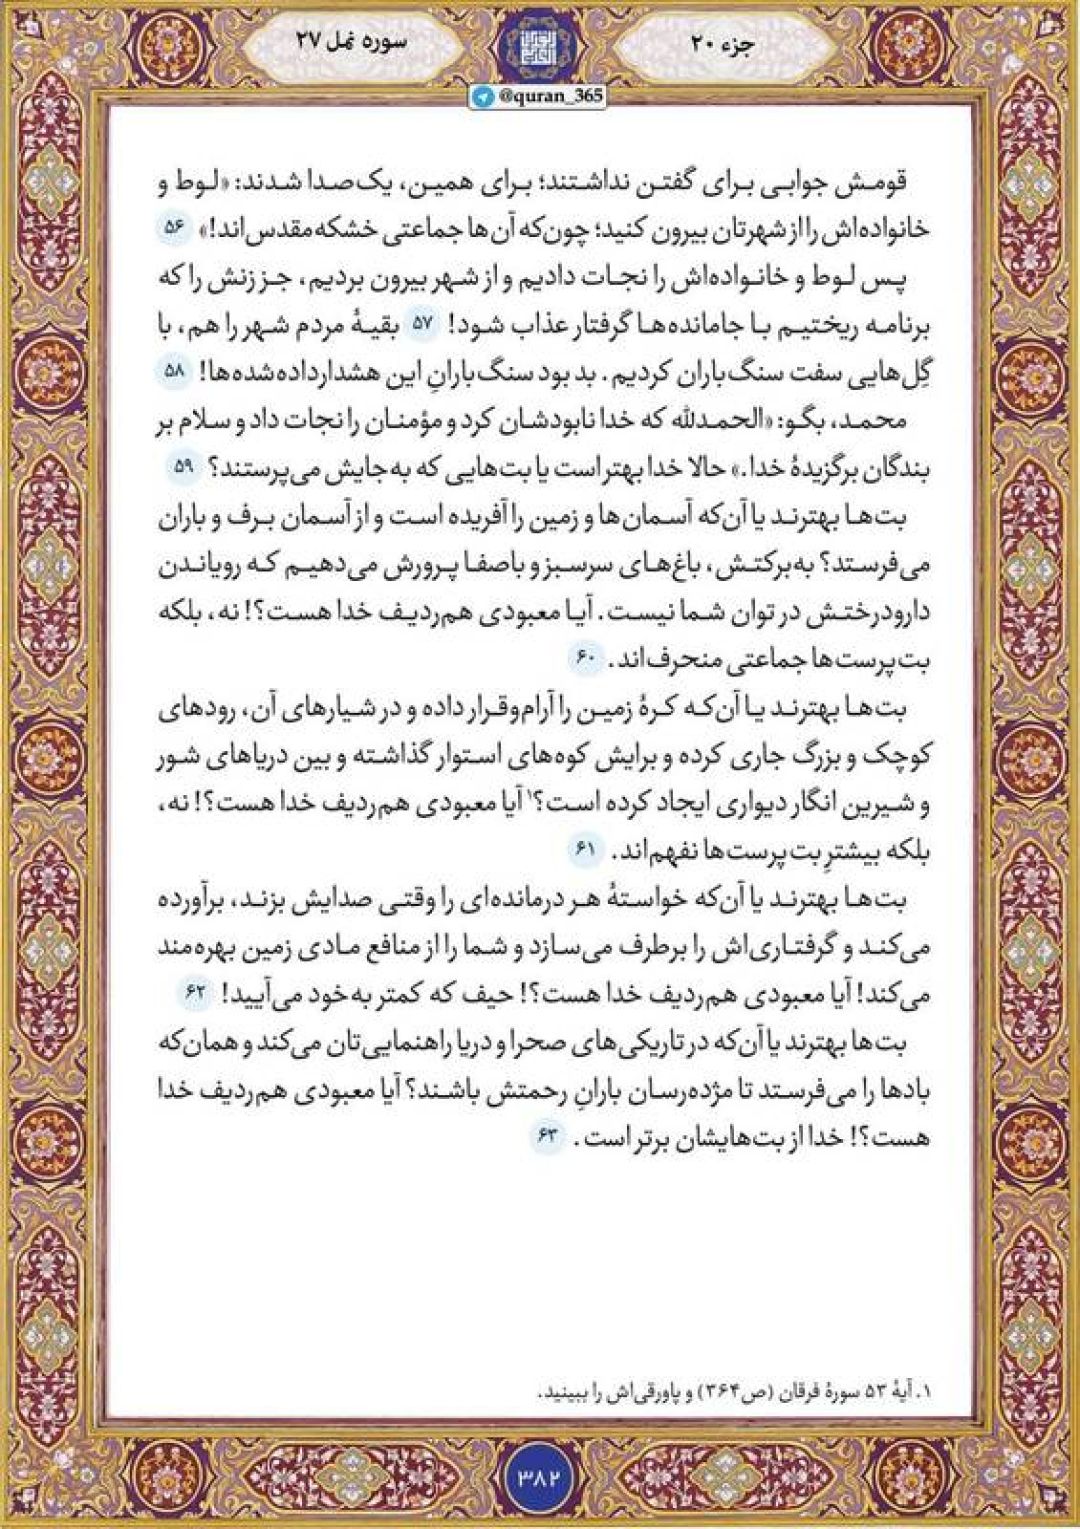 جزء ۲۰
سوره نمل ۲۷
@quran_365
قومش جوابی برای گفتن نداشتند؛ برای همین، یک‌صدا شدند: «لوط و
خانواده‌اش را از شهرتان بیرون کنید؛ چون‌که آن‌ها جماعتی خشکه‌مقدس‌اند!» ۵۶
پس لوط و خانواده‌اش را نجات دادیم و از شهر بیرون بردیم، جز زنش را که
برنامه ریختیم با جامانده‌ها گرفتار عذاب شود! ۵۷ بقیهٔ مردم شهر را هم، با
گِل‌هایی سفت سنگ‌باران کردیم. بد بود سنگ‌بارانِ این هشدارداده‌شده‌ها! ۵۸
محمد، بگو: «الحمدلله که خدا نابودشان کرد و مؤمنان را نجات داد و سلام بر
بندگان برگزیدهٔ خدا.» حالا خدا بهتر است یا بت‌هایی که به‌جایش می‌پرستند؟ ۵۹
بت‌ها بهترند یا آن‌که آسمان‌ها و زمین را آفریده است و از آسمان برف و باران
می‌فرستد؟ به‌برکتش، باغ‌های سرسبز و باصفا پرورش می‌دهیم که رویاندن
دارودرختش در توان شما نیست. آیا معبودی هم‌ردیف خدا هست؟! نه، بلکه
بت‌پرست‌ها جماعتی منحرف‌اند. ۶۰
بت‌ها بهترند یا آن‌که کرهٔ زمین را آرام‌وقرار داده و در شیارهای آن، رودهای
کوچک و بزرگ جاری کرده و برایش کوه‌های استوار گذاشته و بین دریاهای شور
و شیرین انگار دیواری ایجاد کرده است؟۱ آیا معبودی هم‌ردیف خدا هست؟! نه،
بلکه بیشترِ بت‌پرست‌ها نفهم‌اند. ۶۱
بت‌ها بهترند یا آن‌که خواستهٔ هر درمانده‌ای را وقتی صدایش بزند، برآورده
می‌کند و گرفتاری‌اش را برطرف می‌سازد و شما را از منافع مادی زمین بهره‌مند
می‌کند! آیا معبودی هم‌ردیف خدا هست؟! حیف که کمتر به‌خود می‌آیید! ۶۲
بت‌ها بهترند یا آن‌که در تاریکی‌های صحرا و دریا راهنمایی‌تان می‌کند و همان‌که
بادها را می‌فرستد تا مژده‌رسان بارانِ رحمتش باشند؟ آیا معبودی هم‌ردیف خدا
هست؟! خدا از بت‌هایشان برتر است. ۶۳
۱. آیهٔ ۵۳ سورهٔ فرقان (ص۳۶۴) و پاورقی‌اش را ببینید.
۳۸۲